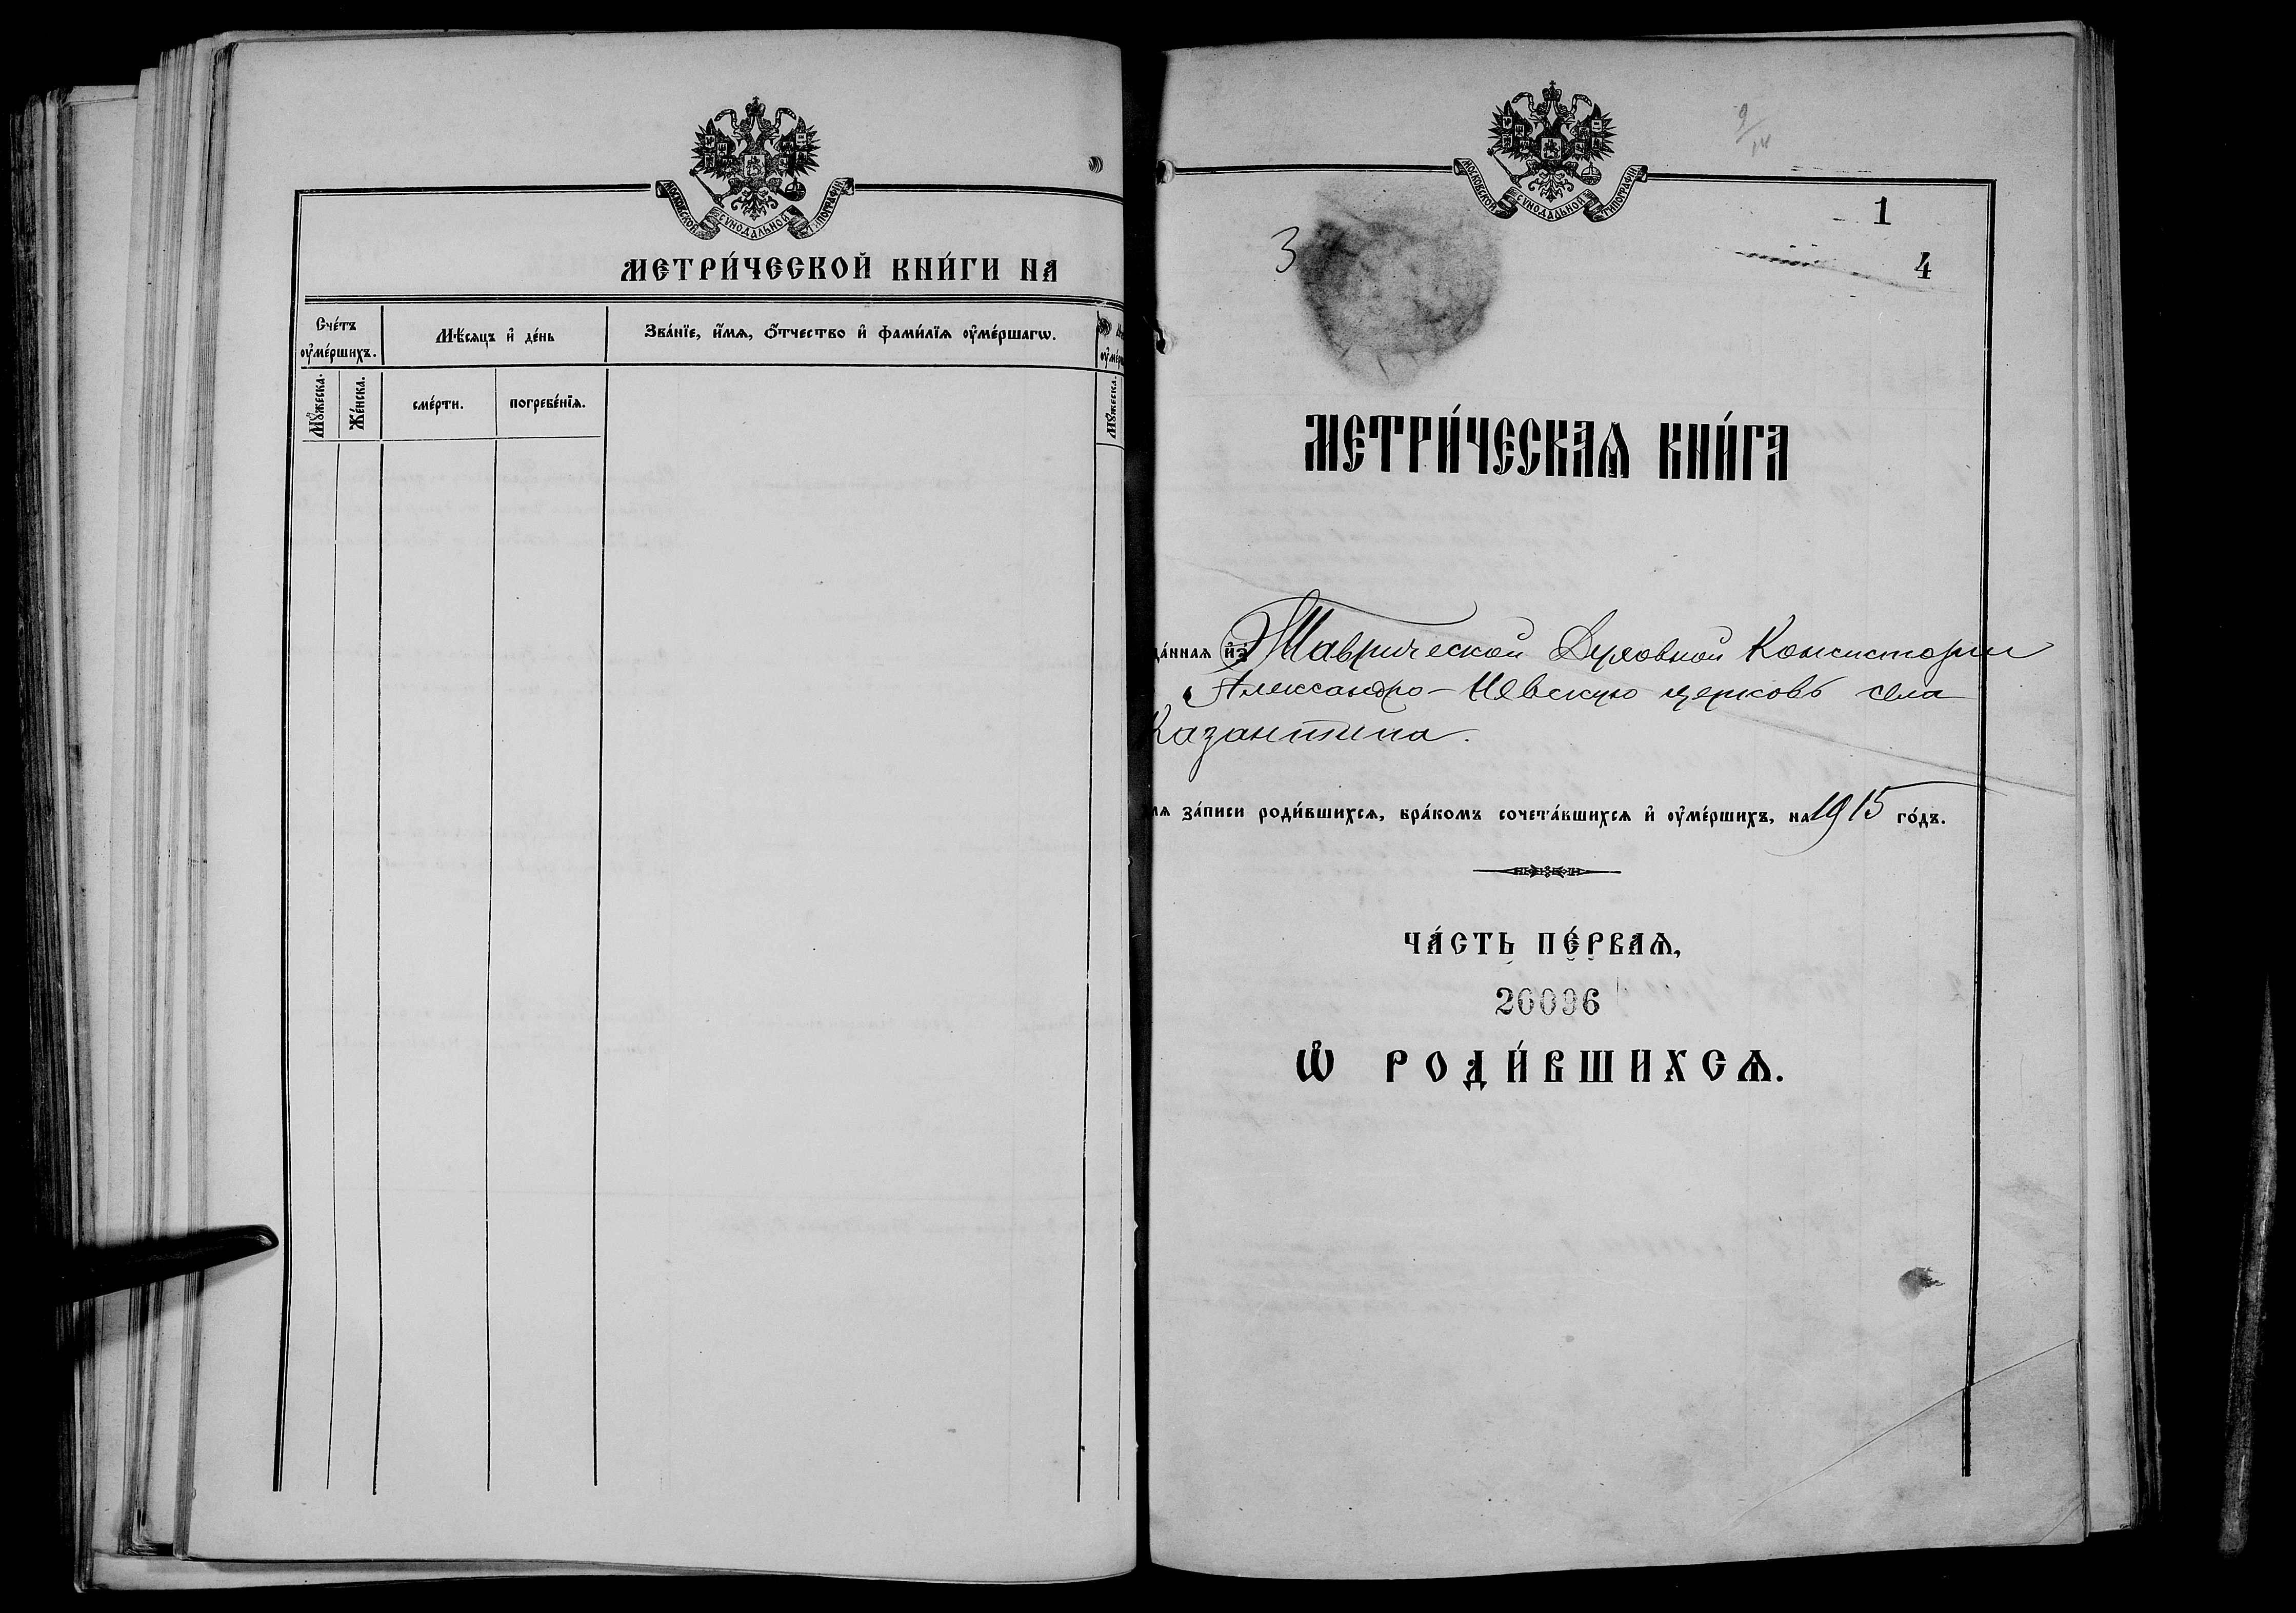 МОСКОВСКОЙ СѴНОДАЛЬНОЙ ТИПОГРАФІИ
МЕТРИ́ЧЕСКОЙ КНИ́ГИ НА
Сче́тъ оу҆ме́ршихъ.
Мѣ́сяцъ и҆ де́нь
Зва́нїе, и҆́мѧ, ѻ҆́тчество и҆ фами́лїѧ оу҆ме́ршагѡ.
Мꙋ́жеска.
Же́нска.
сме́рти.
погребе́нїѧ.
Мꙋ́жеска.
9/14
МОСКОВСКОЙ СѴНОДАЛЬНОЙ ТИПОГРАФІИ
1
3
4
МЕТРИ́ЧЕСКАѦ КНИ́ГА
да́ннаѧ и҆з̾ Таврической Духовной Консисторіи
Александро-Невскую церковь села
Казантипа.
лѧ за́писи роди́вшихсѧ, бра́комъ сочета́вшихсѧ и҆ оу҆ме́ршихъ, на 1915 го́дъ.
ЧА́СТЬ ПЕ́РВАѦ,
20096
Ѡ҆ РОДИ́ВШИХСѦ.